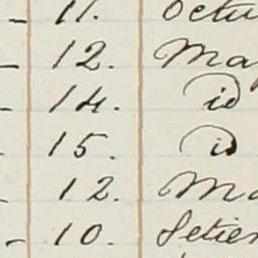 - 11. Octu
- 12. Ma
- 14. id
15. id
12. Ma
- 10. Setiem